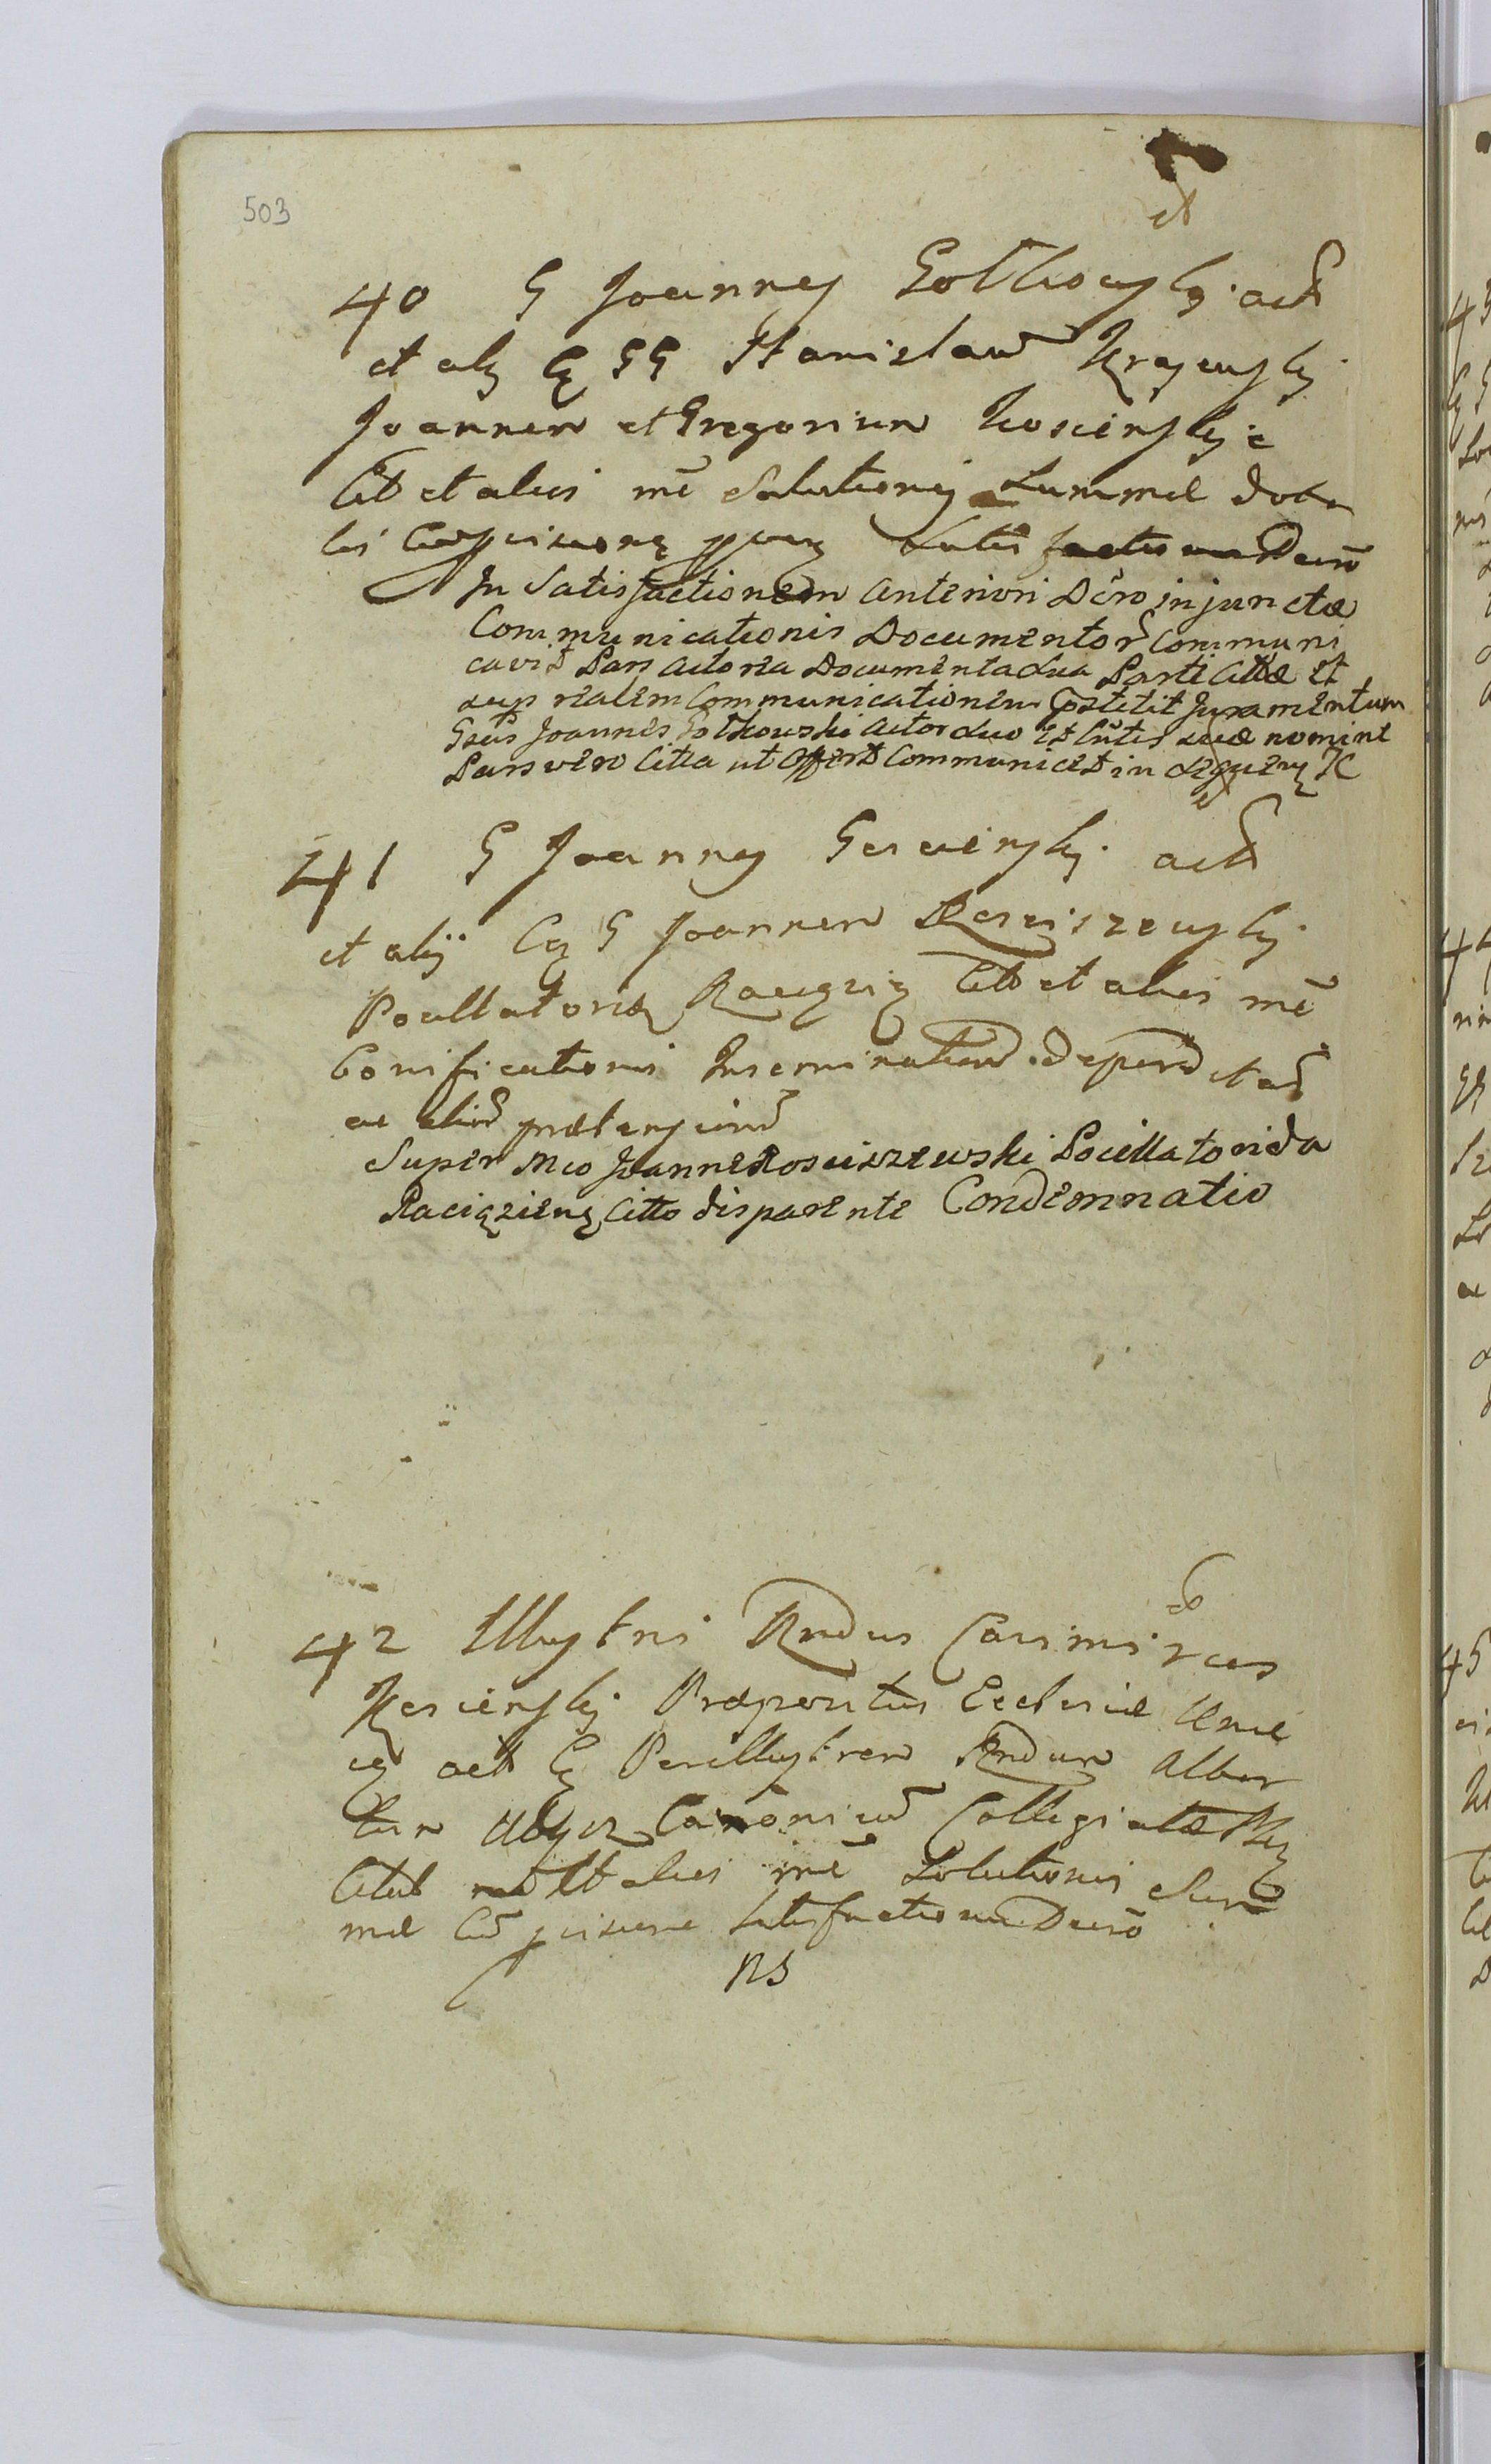 503
et
40 G Joannes Gotkowski act
et alij Cq GG Stanislaum Krajewski
Joannem et Gregorium Koscienski
Citt et alios mē Solutionis Summæ dota
lis Satisfactionem Decro
In Satisfactionem Anteriori Dcro injunctæ
Communicationis Documentor Communi
cavit Pars Actorea Documenta sua Parti Cittæ et
sup realem Communicationem pstitit Juramentum
Gsus Joannes Gotkowski Actor suo et suæ nomine
Pars vero Citta ut Offert Communicet in
et
41 G Joannes act
et alij Cq G Joannem Rosciszewski
Pocillatorem Raciąz Citt et alios mē
bonificationis Inseminationum deperditar
ac aliar prætensionu
Super Mco Joanne Rosciszewski Pocillatorida
Raciązieng Citto disparente Condemnatio
42 Illustris Rndus Casimirus
Koscienski Præpositus Ecclesiæ
act Cq Perillustrem Rndum Alber
tum Canonicum Collegiatæ
Citat et alios mē Solutionis Sum
mæ Satisfactionem Decro
NS